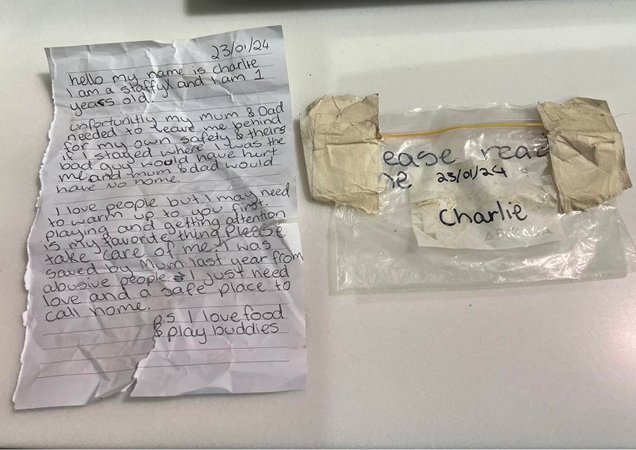 23/01/24
hello my name is charlie
I am a staffyX and I am 1
years old!
Unfortunitly my mum & Dad
needed to leave me behind
for my own safety & theirs
if I stayed where I was the
bad guy would have hurt
me and mum & dad would
have no home.
I love people but I may need
to warm up to you first.
playing and getting attention
is my favorite thing. Please
take care of me. I was
saved by Mum last year from
abusive people. I just need
love and a safe place to
call home.
P.s I love food
& play buddies
ease read
e 23/01/24
Charlie